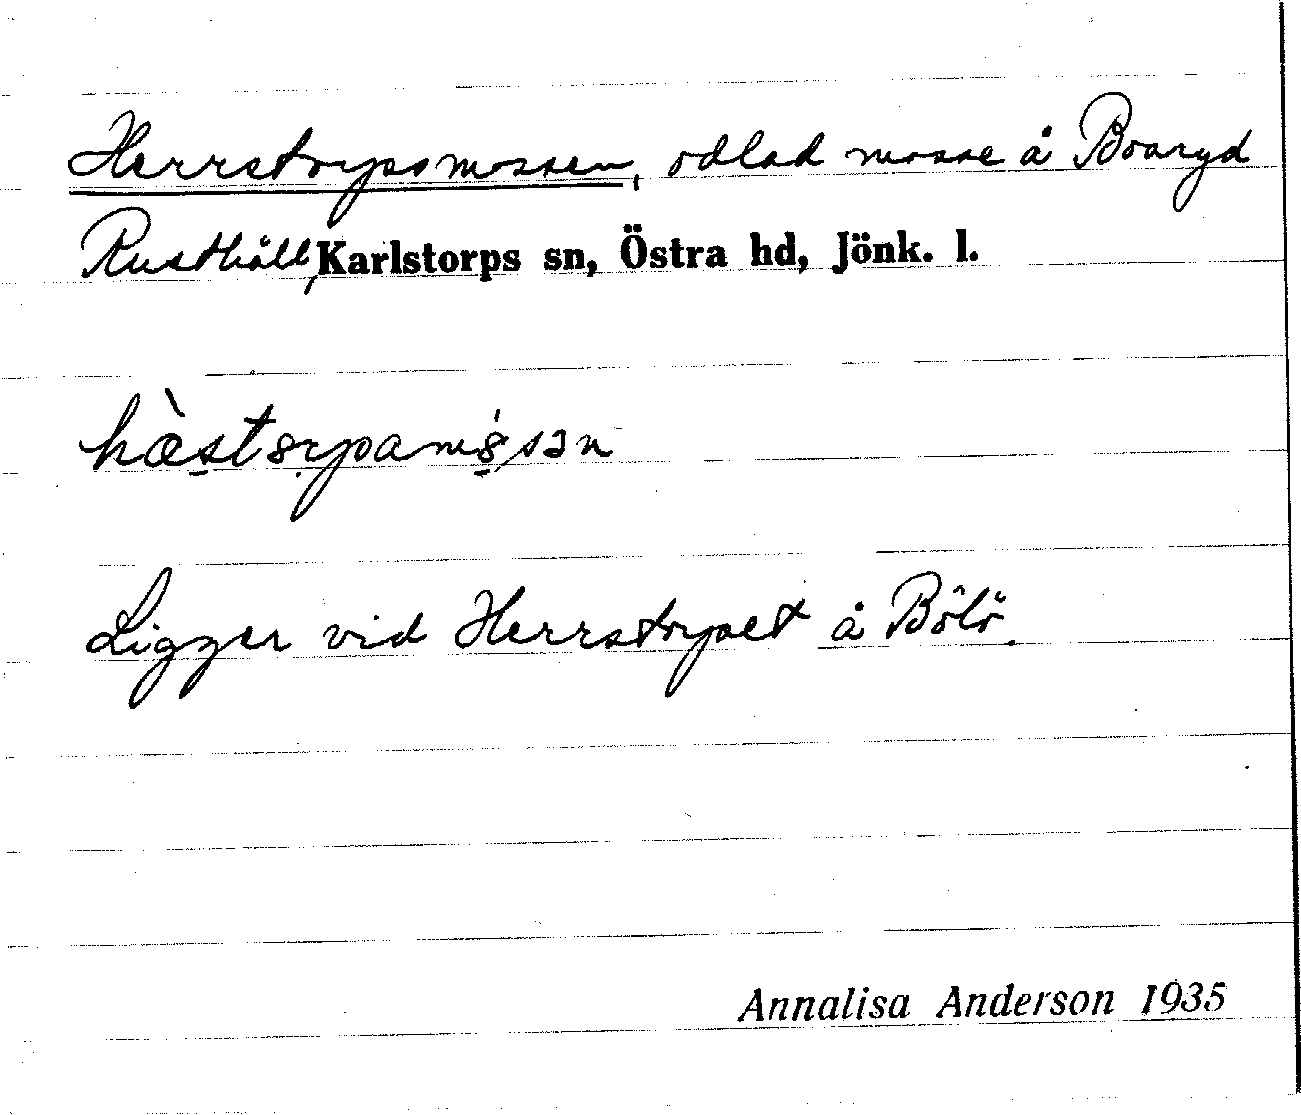 Herrstorpsmossen, odlad mosse å Boaryd
Rusthåll, Karlstorps sn, Östra hd, Jönk. l.
Ligger vid Herrstorpet å Bölö.
Annalisa Anderson 1935